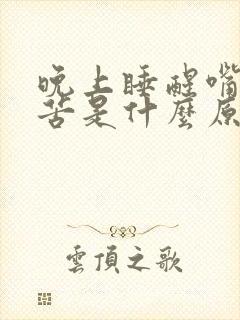 晚上睡醒嘴
苦是什麼原
雲頂之歌